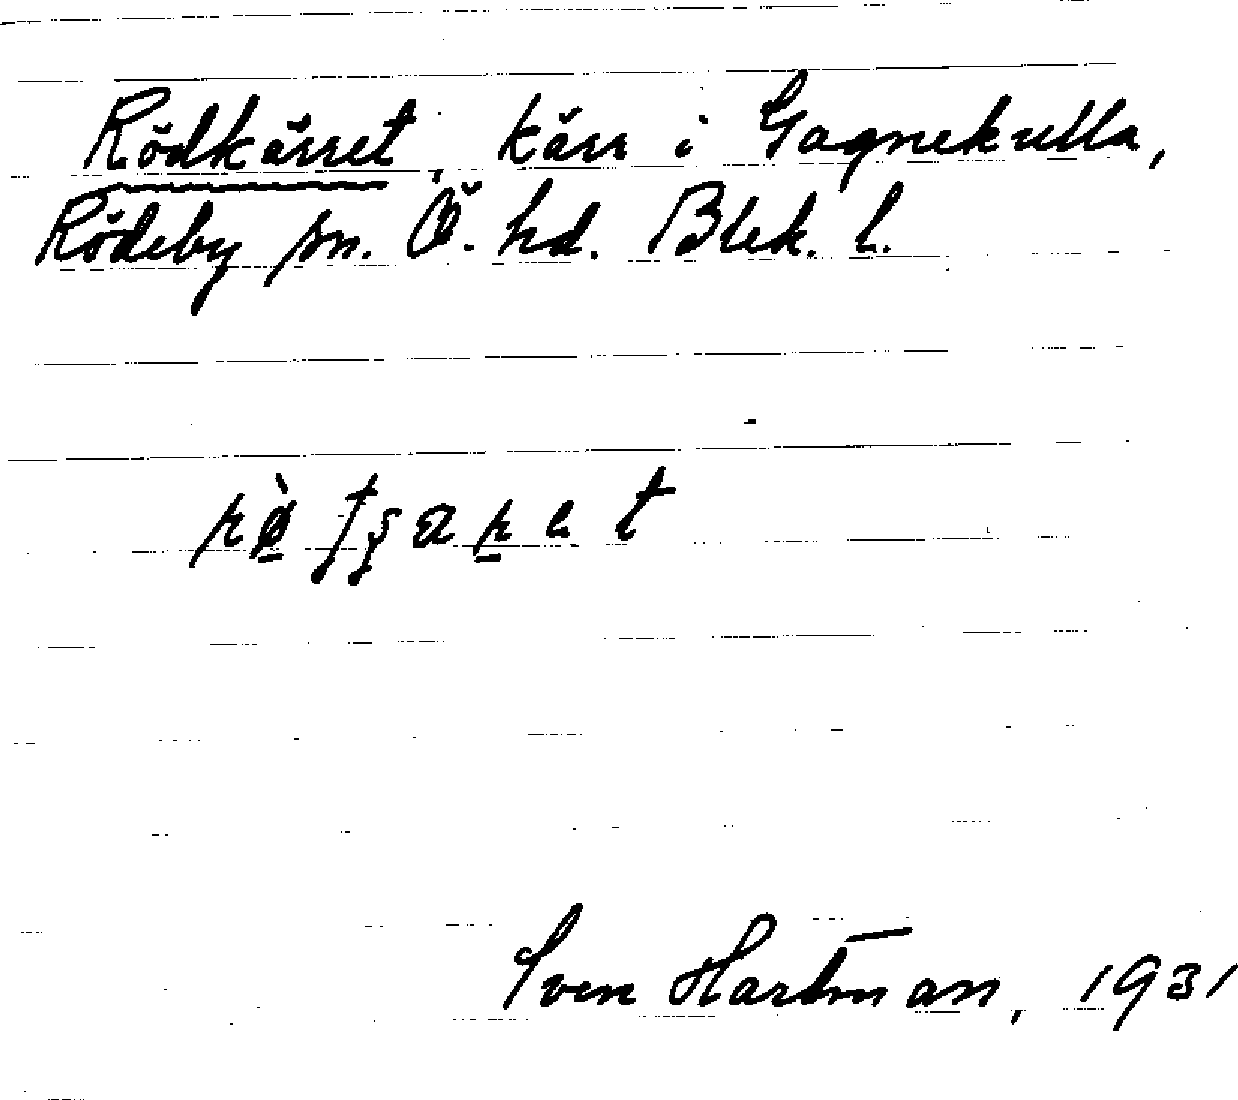 Rödkärret, kärr i Gagnekulla,
Rödeby sn. Ö. hd. Blek. l.
Sven Hartman, 1931